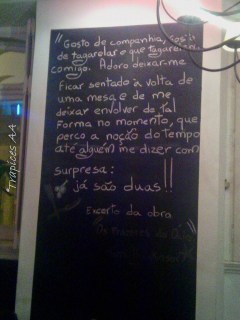 "Gosto de companhia, gosto
de tagarelar e que tagarelem
comigo. Adoro deixar-me
Ficar sentado à volta de
uma mesa e de me
deixar envolver de tal
Forma no momento, que
perco a noção do tempo
até alguém me dizer com
surpresa:
- já são duas!!
Excerto da obra
Os Prazeres da
Trapices AA